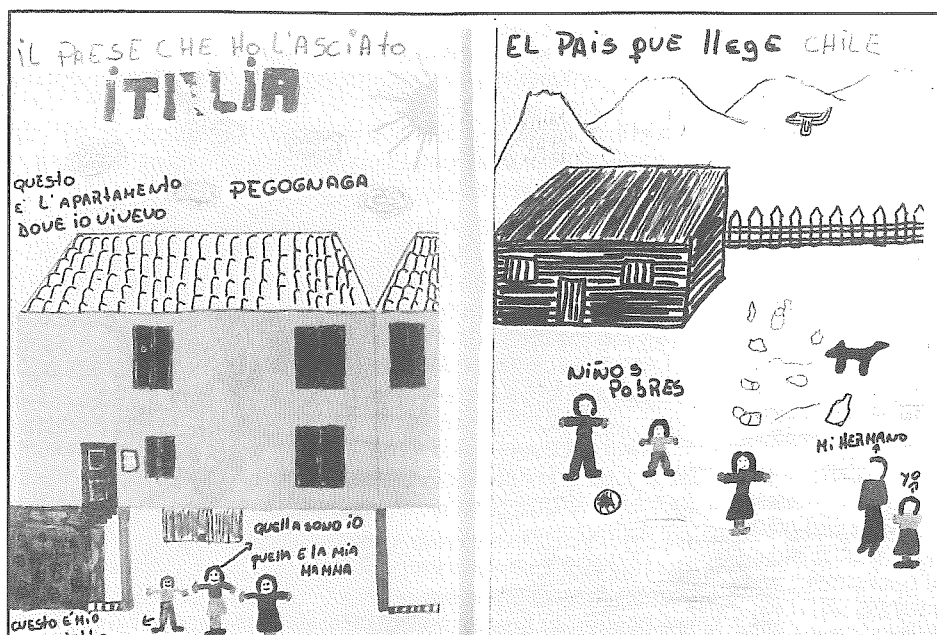 iL PAESE CHE HO L'ASCiATO
iTALiA
QUESTO
E' L'APARTAMENTO
DOVE iO ViVEVO
PEGOGNAGA
QUELLA SONO iO
QUELLA E LA MiA
MAMMA
QUESTO É MiO
EL PAiS QUE llEgE CHiLE
NiÑOS
POBRES
Mi HERMANO
yo